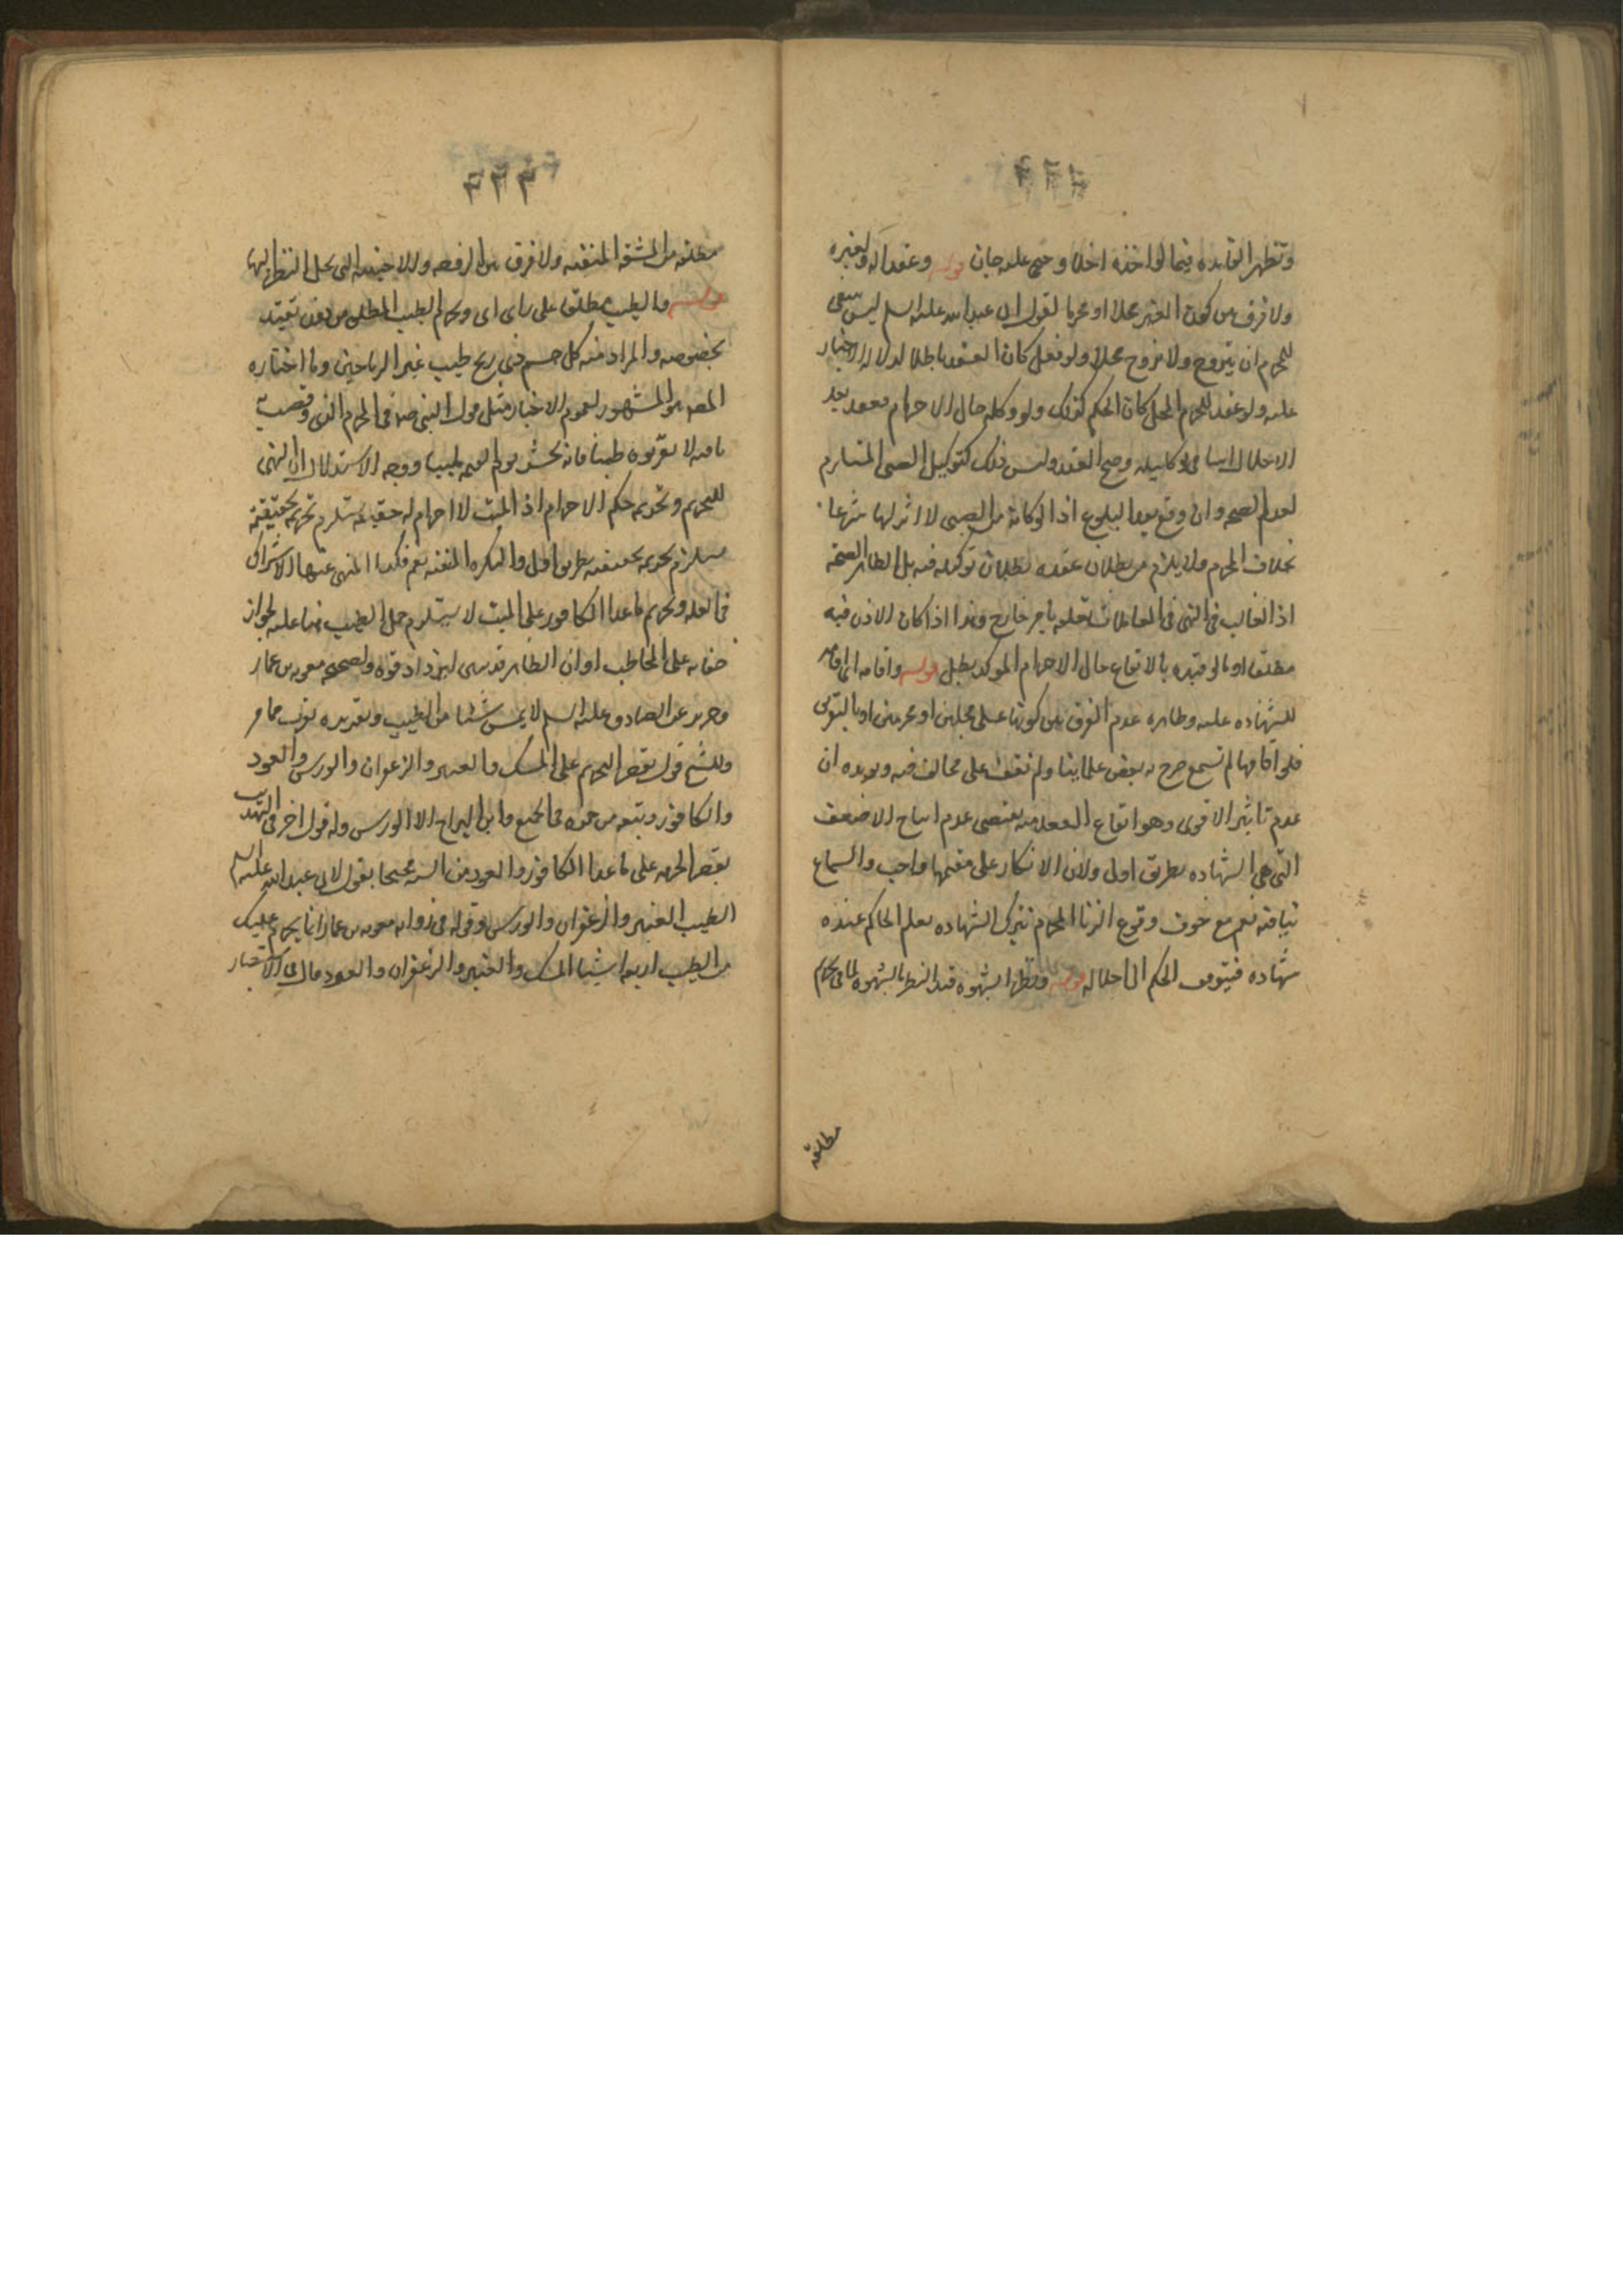 وتظهر الفايده فيما لو اخذه اخلا وجنى عليه جان قوله وعقدا له ولغيره
ولا فرق بين كون الغير محلا او محرما لقول ابى عبد الله عليه السلم ليس ينبغى
للمحرم ان يتزوج ولا يزوج محلا ولو فعل كان العقد باطلا لدلالة الاخبار
عليه ولو عقد للمحرم المحل كان الحكم كذلك ولو وكله حال الاحرام فعقد بعد
الاحلال وصح العقد وليس ذلك كتوكيل الصبى المستلزم
لعدم الصحه وان وقع بعد البلوغ اذ الوكاله من الصبى لا اثر لها شرعا
بخلاف المحرم ولا يلزم من بطلان عقده بطلان توكيله فيه بل الظاهر الصحة
اذ الغالب فى النهى فى المعاملات تعلقه بامر خارج وهذا اذا كان الاذن فيه
مطلقا اما لو قيده بالايقاع حال الاحرام الموكد بطل قوله واقامه اى اقامه
للشهاده عليه وظاهره عدم الفرق بين كونها على محلين او محرمين او بالتفريق
فلو اقامها لم تسمع صرح به بعض علماينا ولم نقف على مخالف فيه ويويده ان
عدم تاثير الاقوى وهو ايقاع العقد منه يقتضى عدم الاضعف
التى هى الشهاده بطريق اولى ولان الانكار على مقيمها واجب والسماع
ينافيه نعم مع خوف وقوع الزنا المحرم بترك الشهاده يعلم الحاكم عنده
شهاده فيتوقف الحكم الى احلاله قوله ونظرا بشهوة قيد النظر بالشهوه لما فى تحريم
مطلقه
مطلقه من المشقه المنفيه ولا فرق بين الزوجه والاجنبيه التى يحل النظر اليها
قوله والطيب مطلقا على راى اى ويحرم الطيب المطلق من دون تقييد
بخصوصه والمراد منه كل جسم ذى ريح طيب غير الرياحين وما اختاره
المصه هو المشهور لعموم الاخبار مثل قول النبى صه فى المحرم الذى وقصت به
ناقته لا تقربوه طيبا فانه يحشر يوم القيمه ملبيا ووجه الاستدلال ان النهى
للتحريم وتحريم حكم الاحرام اذ الميت لا احرام له حقيقه يستلزم تحريم حقيقته
يستلزم تحريم حقيقته بطريق اولى والنكره المنفيه تعم فكذا المنهى عنها للاشتراك
فى العله وتحريم ما عدا الكافور على الميت لا يستلزم حمل الطيب هنا عليه لجواز
خفائه على المخاطب او ان الظاهر ليزداد قوه ولصحيحه معويه بن عمار
وحريز عن الصادق عليه السلم لا يمس شيئا من الطيب وتقريره يقرب مما مر
وللشيخ قول بقصر التحريم على المسك والعنبر والزعفران والورس والعود
والكافور وتبعه بن حمزه فى الجميع وابن البراج الا الورس وله قول اخر فى التهذيب
بقصر الحرمه على ما عدا الكافور والعود من الستة محتجا بقول لابى عبد الله عليه السلم
الطيب العنبر والزعفران والورس وقوله فى روايه معويه بن عمار انما يحرم عليك
من الطيب اربعه اشياء المسك والعنبر والزعفران والعود وقال فى الاستبصار